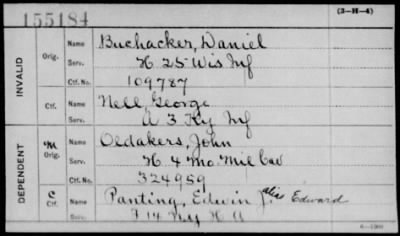 155184
(3-H-4)
INVALID
Orig.
Name
Buchacker, Daniel
Serv.
H 25 Wis Inf
Ctf. No.
109787
Ctf.
Name
Nell, George
Serv.
A 3 Ky Inf
DEPENDENT
M
Orig.
Name
Oldakers, John
Serv.
H 4 Mo. Mil Cav
Ctf. No.
324959
C
Ctf.
Name
Panting, Edwin J. alias Edward
Serv.
F 14 N.Y. H A